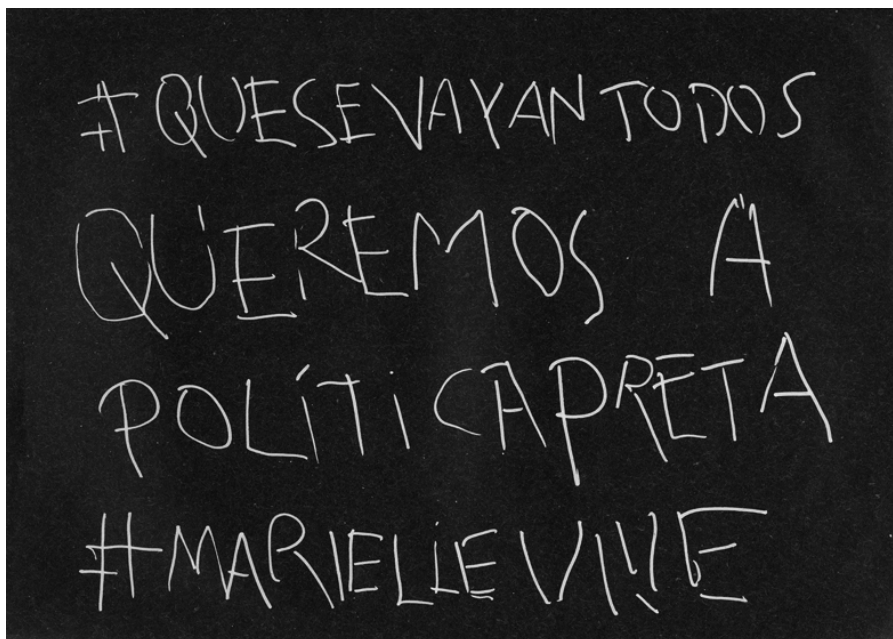 #QUESEVAYANTODOS
QUEREMOS A
POLÍTICAPRETA
#MARIELLEVIVE